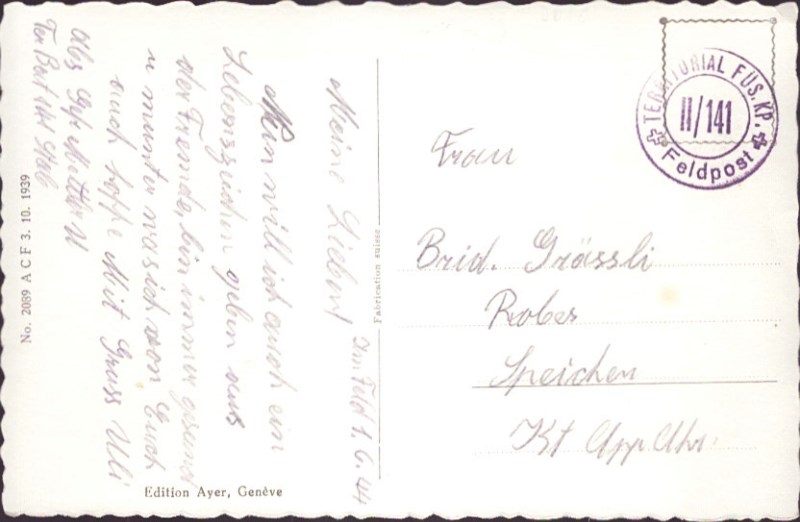 Im Feld 1.6.44
Meine Lieben!
Nun will ich auch ein
Lebenszeichen geben aus
der Fremde, bin immer gesund
u munter was ich von Euch
auch hoffe Mit Gruss Uli
Abs Gfr
Ter Bat Stab
No. 2089 A C F 3. 10. 1939
Edition Ayer, Genève
Fabrication suisse
TERRITORIAL FÜS. KP.
II/141
Feldpost
Frau
Brid. Grässli
Robes
Speichen
Kt App. Ahr.